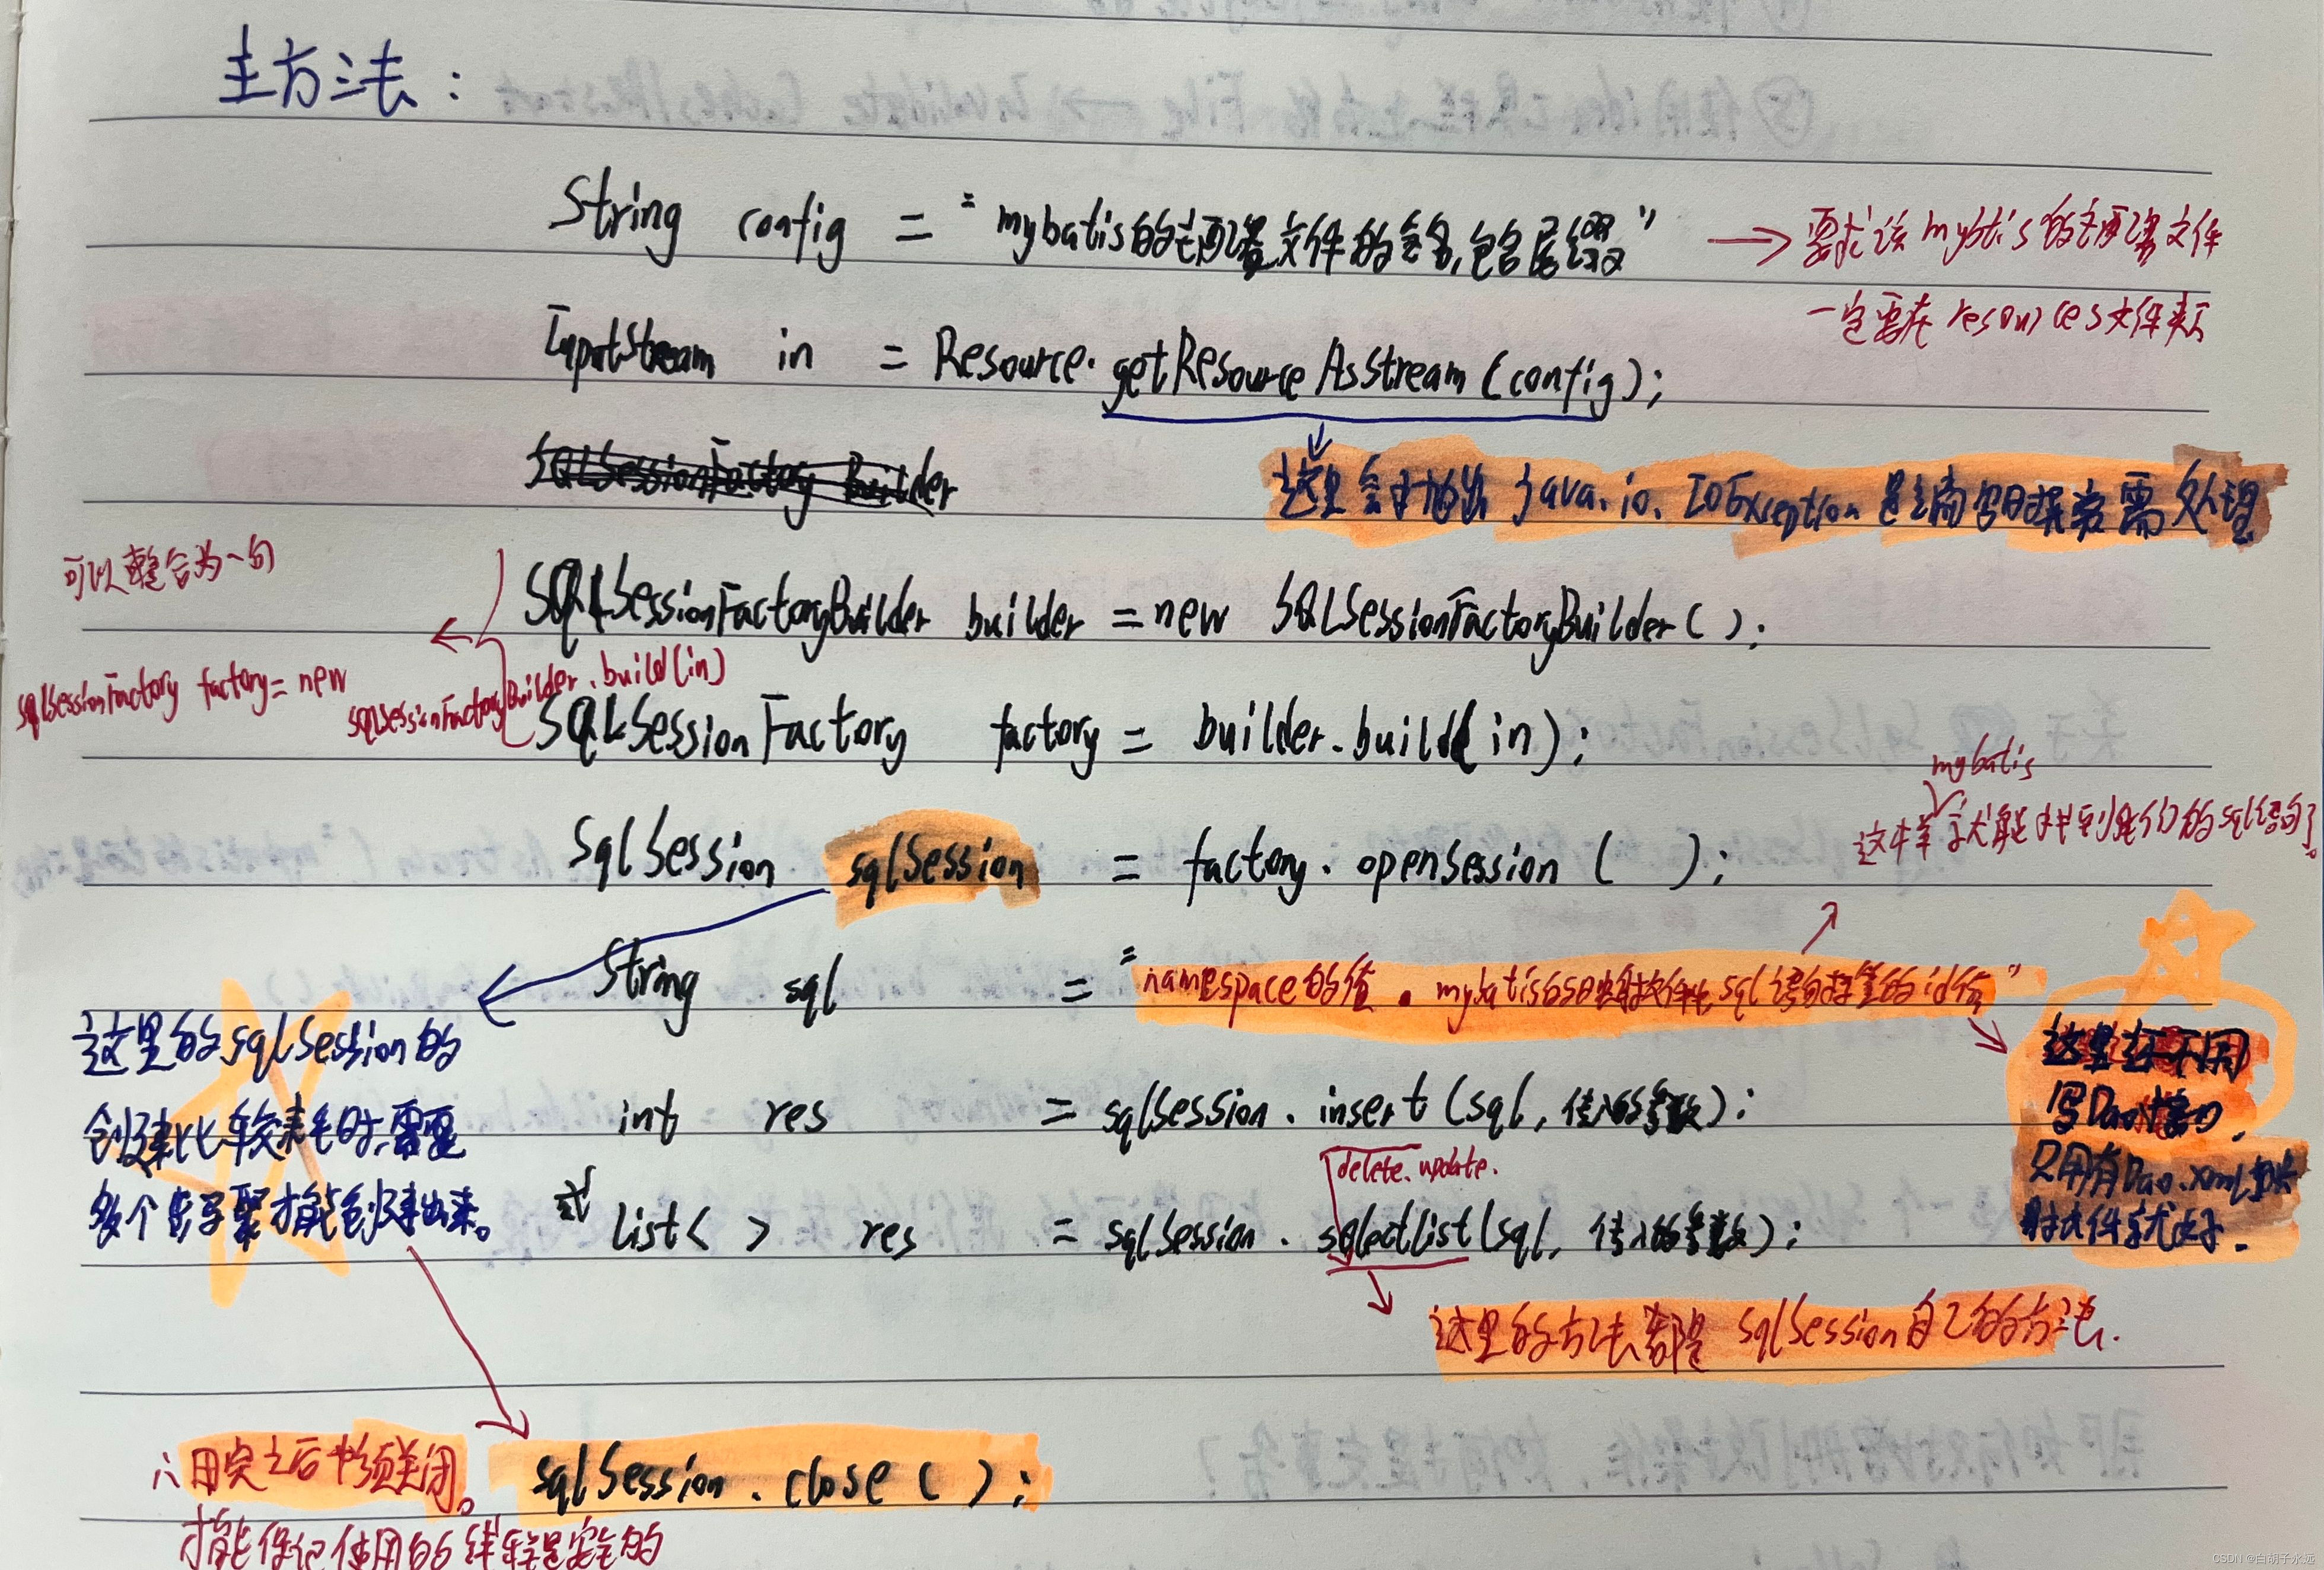 主方法：
String config = "mybatis的主配置文件的全名,包含后缀"
→ 要求该mybtis的主配置文件
一定要在resources文件夹下
InputStream in = Resource.getResourceAsStream(config);
SQLSessionFactory Builder
这里会抛出java.io.IOException是编写时异常需处理
可以整合为一句
SQLSessionFactoryBuilder builder = new SQLSessionFactoryBuilder();
sqlSessionFactory factory = new
sqlSessionFactoryBuilder.build(in)
SQLSessionFactory factory = builder.build(in);
mybatis
这样就能找到我们的sql语句了。
SqlSession sqlSession = factory.openSession( );
String sql = "namespace的值.mybatis的映射文件中sql语句标签的id值"
这里的sqlSession的
创建比较耗时,需要
多个步骤才能创建出来。
这里还不用
写Dao接口,
只用有Dao.xml映
射文件就好.
int res = sqlSession.insert(sql, 传入的参数);
delete.update.
或 List< > res = sqlSession.selectList(sql, 传入的参数);
这里的方法都是sqlSession自己的方法.
用完之后必须关闭。
sqlSession.close( );
才能保证使用的线程是安全的
CSDN @白胡子永远